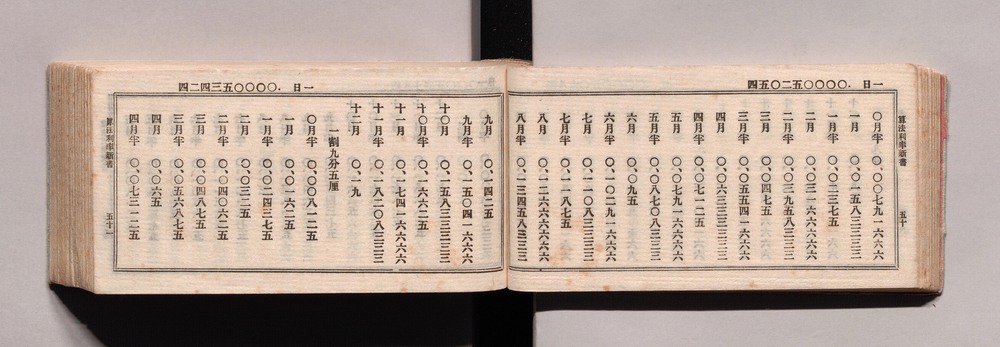 一日 .〇〇〇〇五二〇五四
算法利率新書 五十
〇月半 〇、〇〇七九一六六六
一月 〇、〇一五八三三三三
一月半 〇、〇二三七五
二月 〇、〇三一六六六六六
二月半 〇、〇三九五八三三三
三月 〇、〇四七五
三月半 〇、〇五五四一六六六
四月 〇、〇六三三三三三三
四月半 〇、〇七一二五
五月 〇、〇七九一六六六六
五月半 〇、〇八七〇八三三三
六月 〇、〇九五
六月半 〇、一〇二九一六六六
七月 〇、一一〇八三三三三
七月半 〇、一一八七五
八月 〇、一二六六六六六六
八月半 〇、一三四五八三三三
一日 .〇〇〇〇五三四二四
九月 〇、一四二五
九月半 〇、一五〇四一六六六
十〇月 〇、一五八三三三三三
十〇月半 〇、一六六二五
十一月 〇、一七四一六六六六
十一月半 〇、一八二〇八三三三
十二月 〇、一九
一割九分五厘
〇月半 〇、〇〇八一二五
一月 〇、〇一六二五
一月半 〇、〇二四三七五
二月 〇、〇三二五
二月半 〇、〇四〇六二五
三月 〇、〇四八七五
三月半 〇、〇五六八七五
四月 〇、〇六五
四月半 〇、〇七三一二五
算法利率新書 五十一